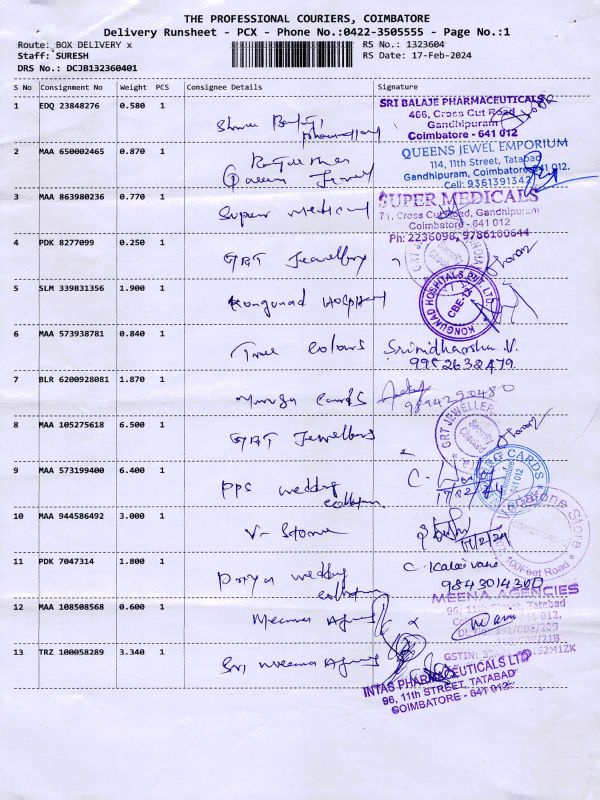 THE PROFESSIONAL COURIERS, COIMBATORE
Delivery Runsheet - PCX - Phone No.:0422-3505555 - Page No.:1
Route: BOX DELIVERY x
RS No.: 1323604
Staff: SURESH
RS Date: 17-Feb-2024
DRS No.: DCJB132360401
S No Consignment No Weight PCS Consignee Details Signature
1 EDQ 23848276 0.580 1
SRI BALAJE PHARMACEUTICALS
466, Cross Cut Road
Gandhipuram
Coimbatore - 641 012
2 MAA 650002465 0.870 1
Queen Jewel
QUEENS JEWEL EMPORIUM
114, 11th Street, Tatabad
Gandhipuram, Coimbatore
Cell: 9361391342
3 MAA 863980236 0.770 1 Super medical
SUPER MEDICALS
71, Cross Cut Road, Gandhipuram
Coimbatore - 641 012
Ph: 2236098, 9786100644
4 PDK 8277099 0.250 1 GRT Jewellery
5 SLM 339831356 1.900 1 Kongunad Hospital
KONGUNAD HOSPITALS PVT. LTD
CBE-12
6 MAA 573938781 0.840 1 True Colours
Srinidharshu.V.
9952632479
7 BLR 6200928081 1.870 1 cards
9894290480
8 MAA 105275618 6.500 1 GRT Jewellers
GRT JEWELLER
Security
Checked
9 MAA 573199400 6.400 1 PPS wedding
CARDS
17/02/24
10 MAA 944586492 3.000 1 V- Store
17/2/24
Vodafone Store
100Feet Road
11 PDK 7047314 1.800 1 Priya wedding
C. Kalaivani
9843014300
12 MAA 108508568 0.600 1 Meena
MEENA AGENCIES
96, 11th Street, Tatabad
13 TRZ 100058289 3.340 1 Sri Meena
GSTIN:
INTAS PHARMACEUTICALS LTD
96, 11th STREET, TATABAD
COIMBATORE - 641 012.